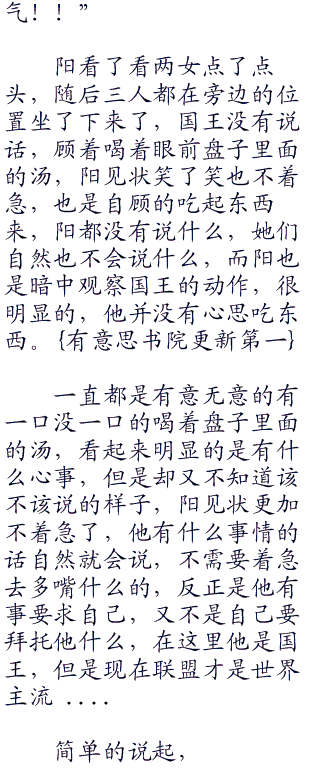 气！！”
阳看了看两女点了点
头，随后三人都在旁边的位
置坐了下来了，国王没有说
话，顾着喝着眼前盘子里面
的汤，阳见状笑了笑也不着
急，也是自顾的吃起东西
来，阳都没有说什么，她们
自然也不会说什么，而阳也
是暗中观察国王的动作，很
明显的，他并没有心思吃东
西。{有意思书院更新第一}
一直都是有意无意的有
一口没一口的喝着盘子里面
的汤，看起来明显的是有什
么心事，但是却又不知道该
不该说的样子，阳见状更加
不着急了，他有什么事情的
话自然就会说，不需要着急
去多嘴什么的，反正是他有
事要求自己，又不是自己要
拜托他什么，在这里他是国
王，但是现在联盟才是世界
主流 ....
简单的说起，